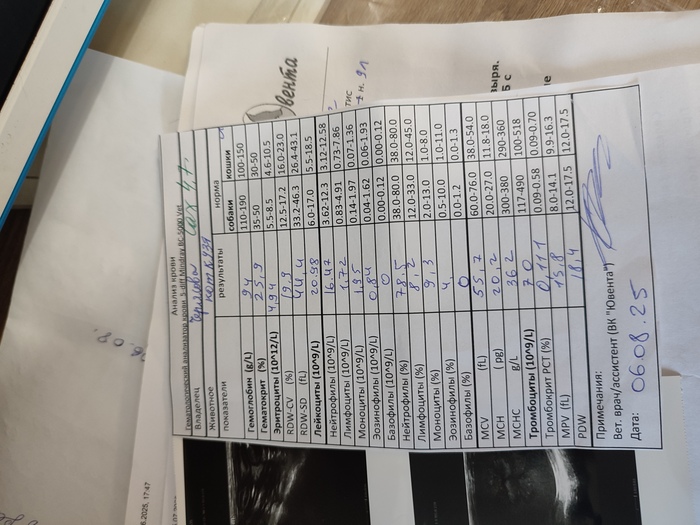 Анализ крови
Гематологический анализатор крови 5-diff Mindray BC-5000 Vet
Владелец
Животное кот
показатели результаты норма
собаки кошки
Гемоглобин (g/L) 94 110-190 100-150
Гематокрит (%) 25,9 35-50 30-50
Эритроциты (10^12/L) 4,94 5.5-8.5 4.6-10.5
RDW-CV (%) 19,9 12.5-17.2 16.0-23.0
RDW-SD (fL) 44,4 33.2-46.3 26.4-43.1
Лейкоциты (10^9/L) 20.98 6.0-17.0 5.5-18.5
Нейтрофилы (10^9/L) 16.47 3.62-12.3 3.12-12.58
Лимфоциты (10^9/L) 1.72 0.83-4.91 0.73-7.86
Моноциты (10^9/L) 1,95 0.14-1.97 0.07-1.36
Эозинофилы (10^9/L) 0.84 0.04-1.62 0.06-1.93
Базофилы (10^9/L) 0 0.00-0.12 0.00-0.12
Нейтрофилы (%) 78.5 38.0-80.0 38.0-80.0
Лимфоциты (%) 8,2 12.0-33.0 12.0-45.0
Моноциты (%) 9,3 2.0-13.0 1.0-8.0
Эозинофилы (%) 4, 0.5-10.0 1.0-11.0
Базофилы (%) 0 0.0-1.2 0.0-1.3
MCV (fL) 55,7 60.0-76.0 38.0-54.0
MCH (pg) 20,2 20.0-27.0 11.8-18.0
MCHC g/L 362 300-380 290-360
Тромбоциты (10^9/L) 70 117-490 100-518
Тромбокрит PCT (%) 0,111 0.09-0.58 0.09-0.70
MPV (fL) 15,8 8.0-14.1 9.9-16.3
PDW 18,4 12.0-17.5 12.0-17.5
Примечания:
Вет. врач/ассистент (ВК "Ювента")
Дата: 06.08.25
вента
.2025, 17:47